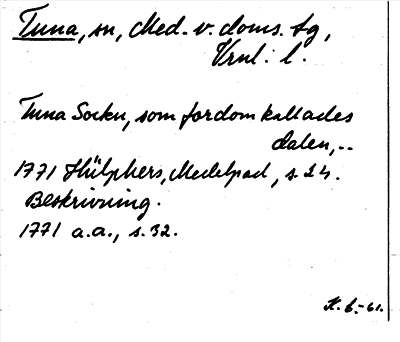 Tuna, sn, Med. v. doms. tg,
Vrnl: l.
Tuna Sockn, som fordom kallades
dalen,..
1771 Hülphers, Medelpad, s. 24.
Beskrivning.
1771 a.a., s. 32.
K. b.-61.